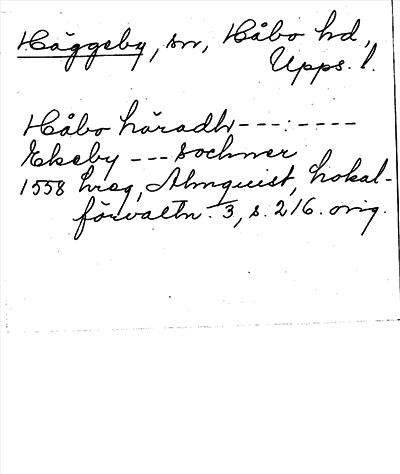 Häggeby, sn, Håbo hd,
Upps. l.
Håbo häradh---:----
Ekeby --- sochner
1558 hreg, Almquist, Lokal-
förvaltn. 3, s. 216. orig.